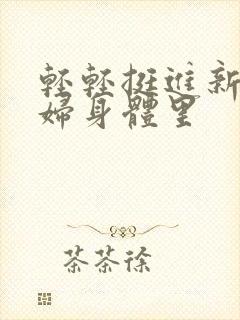 輕輕挺進新
婦身體里
茶茶徐